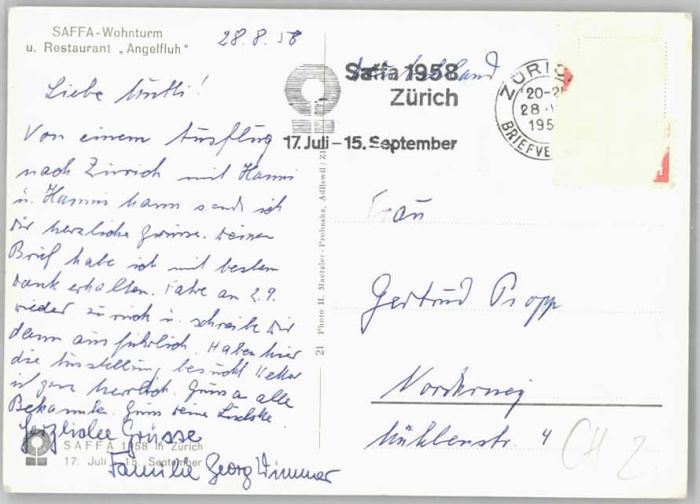 SAFFA-Wohnturm
u. Restaurant „Angelfluh"
28.8.58
Liebe Mutti!
Von einem Ausflug
nach Zürich mit Hanni
u. Hannis Mann sende ich
Dir herzliche Grüsse. Deinen
Brief habe ich mit bestem
Dank erhalten. Fahre am 2.9.
wieder zurück u. schreibe Dir
dann ausführlich. Haben hier
die Ausstellung besucht Wetter
ist ganz herrlich. Gruss an alle
Bekannte. Gruss Deine
Herzliche Grüsse
Familie Georg Wimmer
SAFFA 1958 in Zürich
17. Juli - 15. September
21 Photo H. Maetzler-Prohaska, Adliswil / Z
Saffa 1958
Zürich
17. Juli – 15. September
Deutschland
ZÜRIC
20-2
28.
195
BRIEFVE
Frau
Gertrud Propp
Norderney
Mühlenstr. 4
CH 2